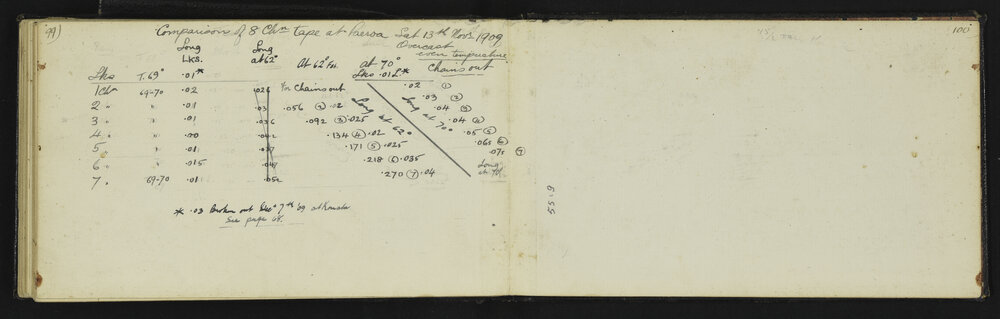 99)
Comparison of 8 Chn Tape at Paeroa Sat 13th Novr 1909
Overcast
even temperature
Long Lks.
Long at 62°
At 62° For Chains out
at 70° Lks .01 L*
Chains out
Lks T. 69° .01*
1 Chn 69-70 .02 .026
2 " " .01 .03 .056 (2) .02
3 " " .01 .036 .092 (3) .025
4 " " .00 .134 (4) .02
5 " " .01 .037 .171 (5) .025
6 " " .015 .047 .218 (6) .035
7 " 69-70 .01 .052 .270 (7) .04
Long at 62°
Long at 70°
.02 (1)
.03 (2)
.04 (3)
.04 (4)
.05 (5)
.065 (6)
.075 (7)
Long at 70°
* .03 Broken out Dec 7th 09 at
See page 68.
5519
100